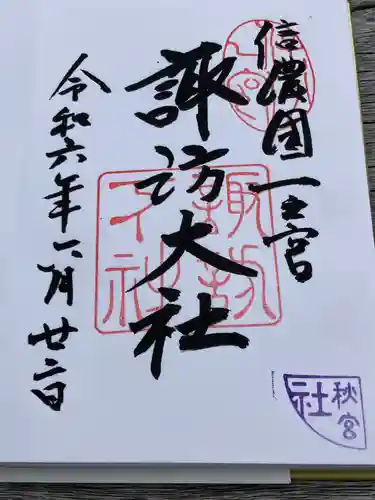 信濃国一之宮
諏訪大社
令和六年一月廿二日
諏訪大社
秋宮
社